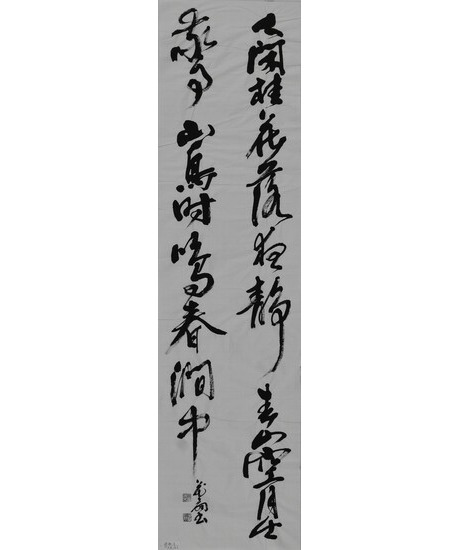 人閑桂花落夜静春山空月出
驚山鳥时鳴春澗中